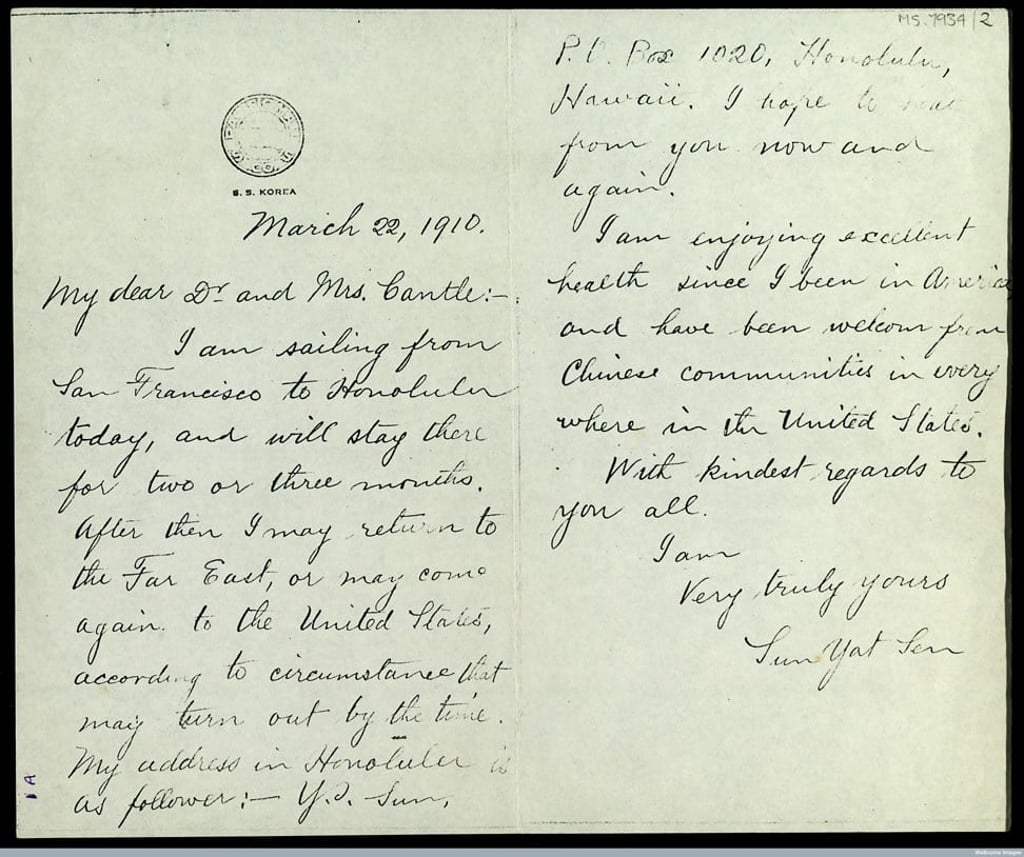 MS. 7934/2
S. S. KOREA
March 22, 1910.
My dear Dr and Mrs. Cantle:-
I am sailing from
San Francisco to Honolulu
today, and will stay there
for two or three months.
After then I may return to
the Far East, or may come
again to the United States,
according to circumstance that
may turn out by the time.
My address in Honolulu is
as follower:— Y.S. Sun,
P.O. Box 1020, Honolulu,
Hawaii. I hope to hear
from you now and
again.
I am enjoying excellent
health since I been in America
and have been welcom from
Chinese communities in every
where in the United States.
With kindest regards to
you all.
I am
Very truly yours
Sun Yat Sen
1A
Wellcome Images